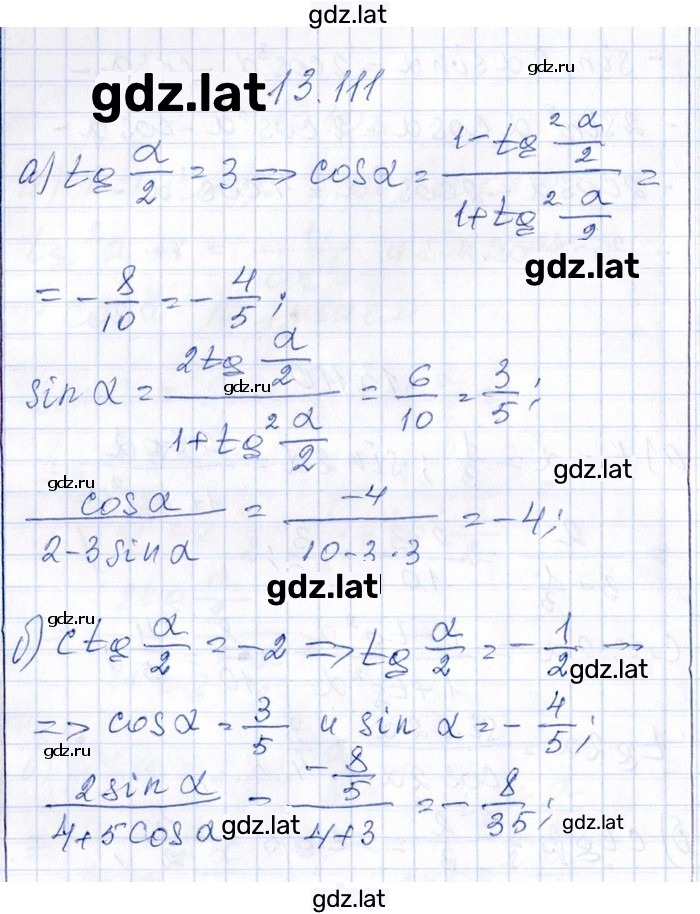 gdz.lat
gdz.lat 13.111 gdz.ru
а) tg α/2 = 3 => cos α = (1 - tg² α/2)/(1 + tg² α/2) =
gdz.lat
= - 8/10 = - 4/5 ;
sin α = (2 tg α/2)/(1 + tg² α/2) = 6/10 = 3/5 ;
gdz.ru
gdz.ru gdz.lat
cos α/(2 - 3 sin α) = -4/(10 - 3 · 3) = -4 ;
gdz.lat
gdz.ru
б) ctg α/2 = -2 => tg α/2 = - 1/2 =>
gdz.lat
=> cos α = 3/5 и sin α = - 4/5 ;
gdz.ru
2 sin α/(4 + 5 cos α) = (- 8/5)/(4 + 3) = - 8/35 ;
gdz.lat gdz.lat
gdz.lat